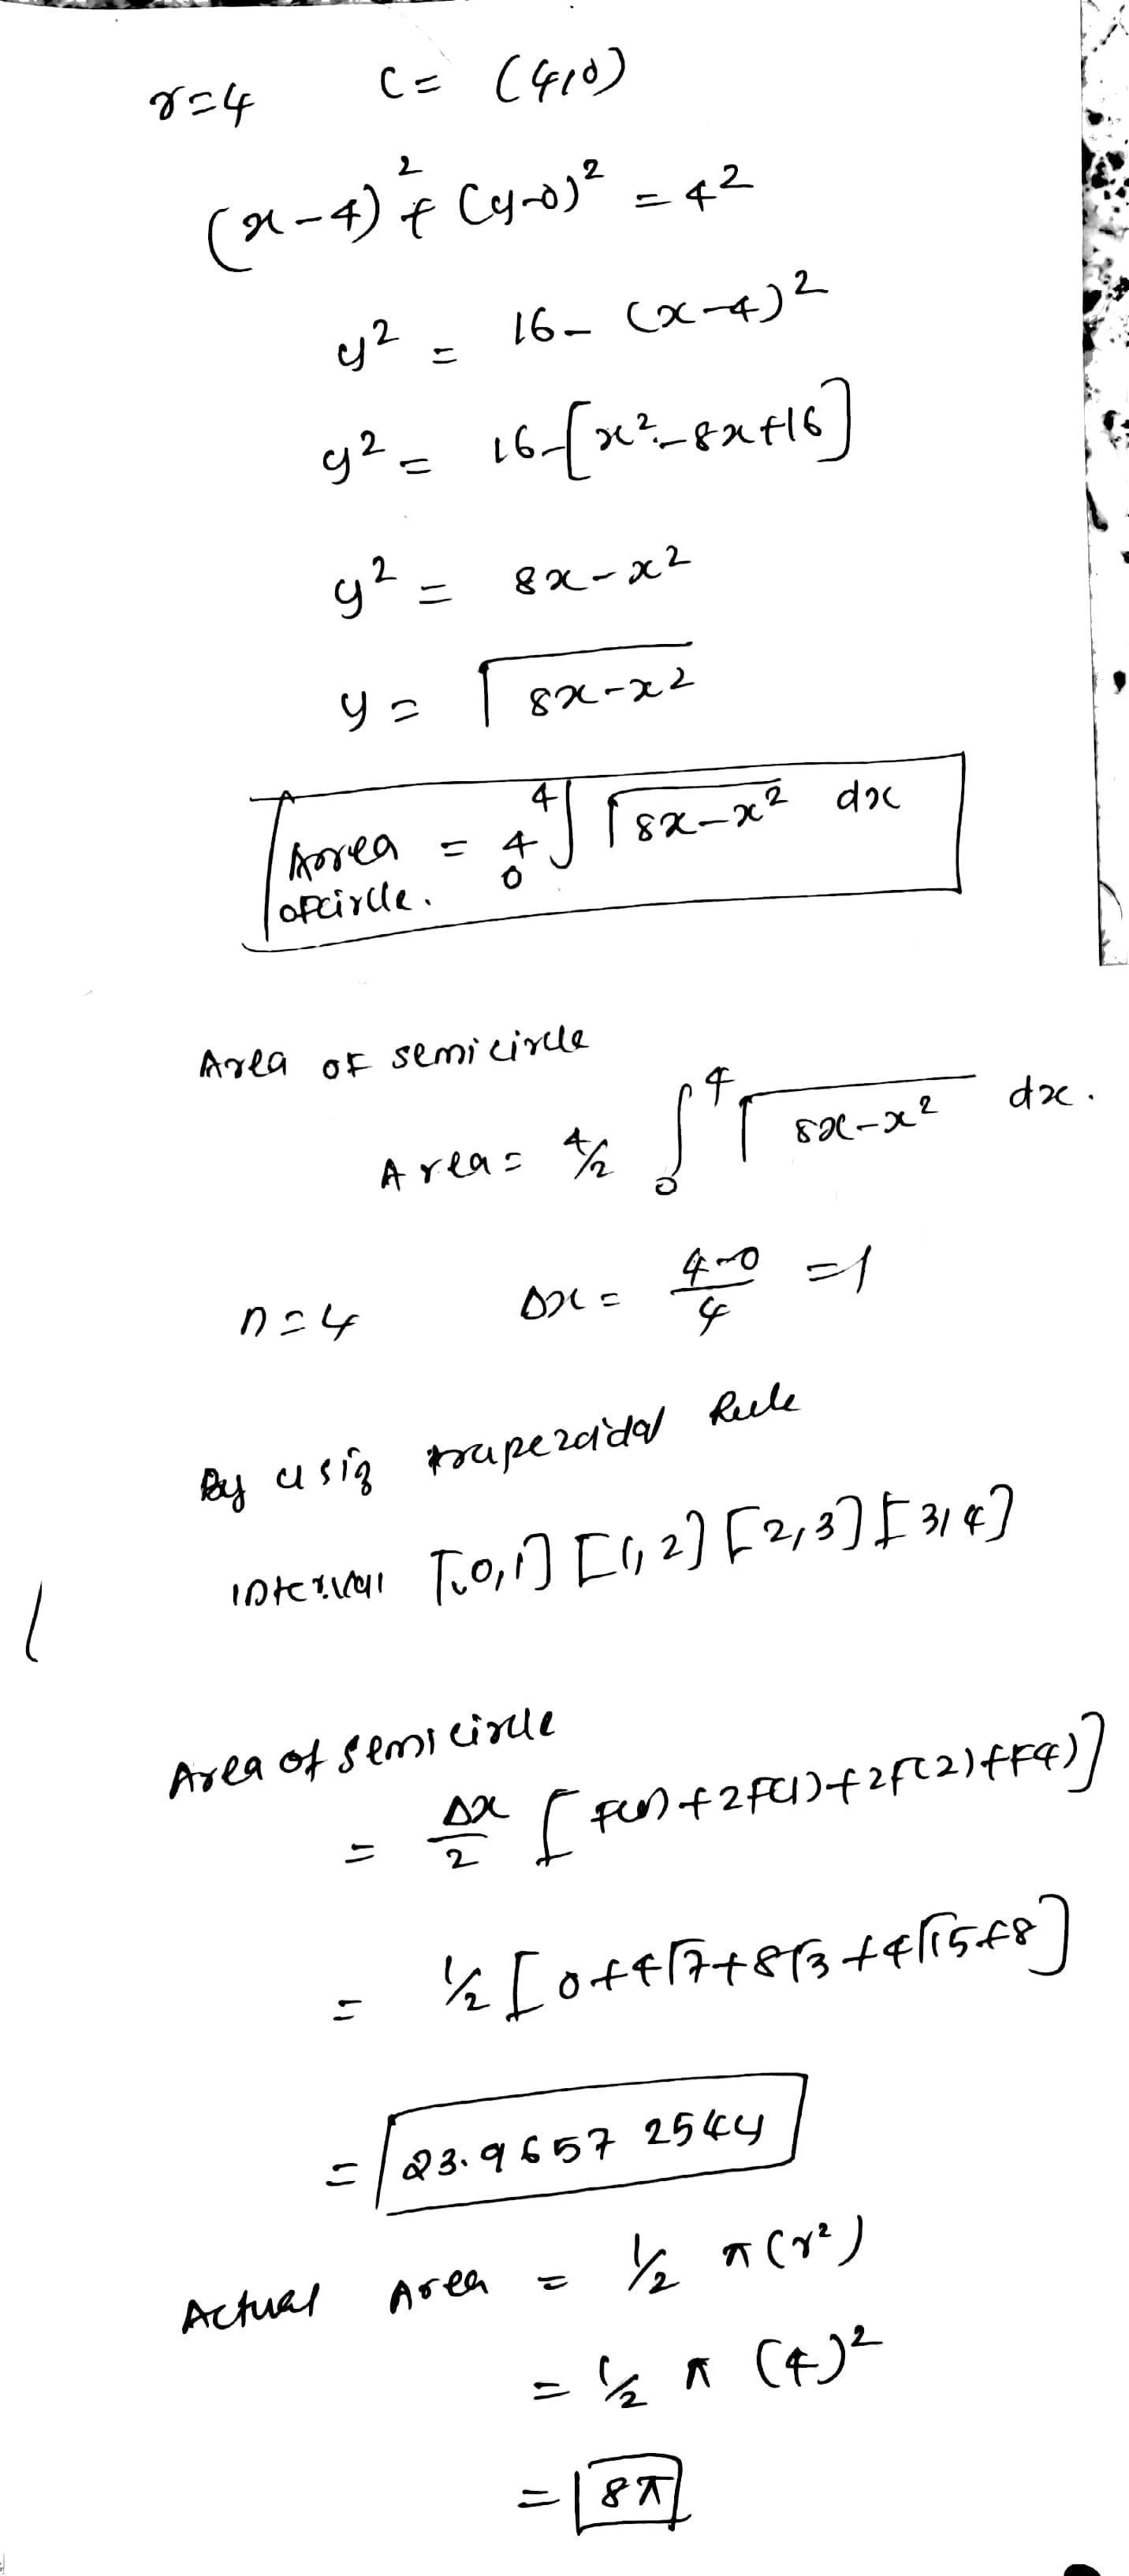 r=4 C= (4,0)
(x-4)² + (y-0)² = 4²
y² = 16- (x-4)²
y² = 16-[x²-8x+16]
y² = 8x-x²
y = √8x-x²
Area = 4 ∫₀⁴ √8x-x² dx
of circle.
Area of semi circle
Area = 4/2 ∫₀⁴ √8x-x² dx.
n=4 Δx = 4-0/4 =1
By usig trapezoidal Rule
Interval [0,1] [1,2] [2,3] [3,4]
Area of semi circle
= Δx/2 [f(0)+2f(1)+2f(2)+f(4)]
= 1/2 [0+4√7+8√3+4√15+8]
= 23.9657 2544
Actual Area = 1/2 π(r²)
= 1/2 π (4)²
= 8π